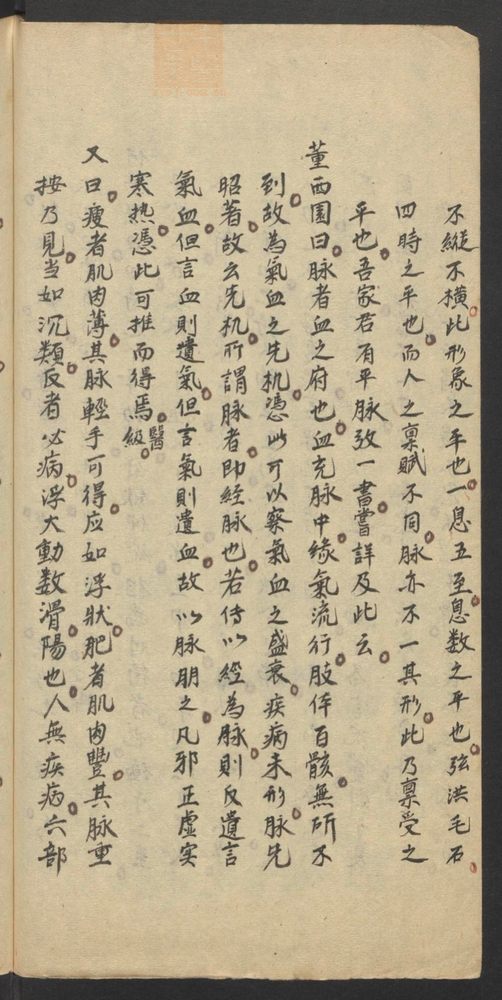 不縱不橫此形象之平也一息五至息数之平也弦洪毛石
四時之平也而人之禀賦不同脉亦不一其形此乃禀受之
平也吾家君有平脉攷一書嘗詳及此云
董西園曰脉者血之府也血充脉中緣氣流行肢体百骸無所不
到故為氣血之先机憑此可以察氣血之盛衰疾病未形脉先
昭著故云先机所謂脉者即經脉也若传以經為脉則反遺言
氣血但言血則遺氣但言氣則遺血故以脉明之凡邪正虛实
寒热憑此可推而得焉醫級
又曰瘦者肌肉薄其脉輕手可得应如浮狀肥者肌肉豐其脉重
按乃見当如沉類反者必病浮大動数滑陽也人無疾病六部